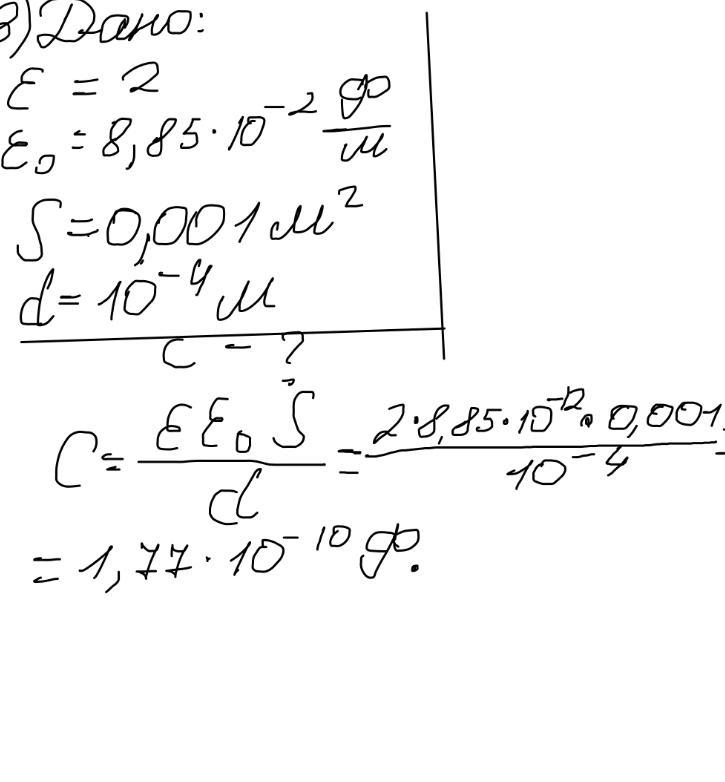 3) Дано:
ε = 2
ε₀ = 8,85·10⁻² ф/м
S = 0,001 м²
d = 10⁻⁴ м
C - ?
C = εε₀S/d = 2·8,85·10⁻¹²·0,001/10⁻⁴ =
= 1,77·10⁻¹⁰ ф.